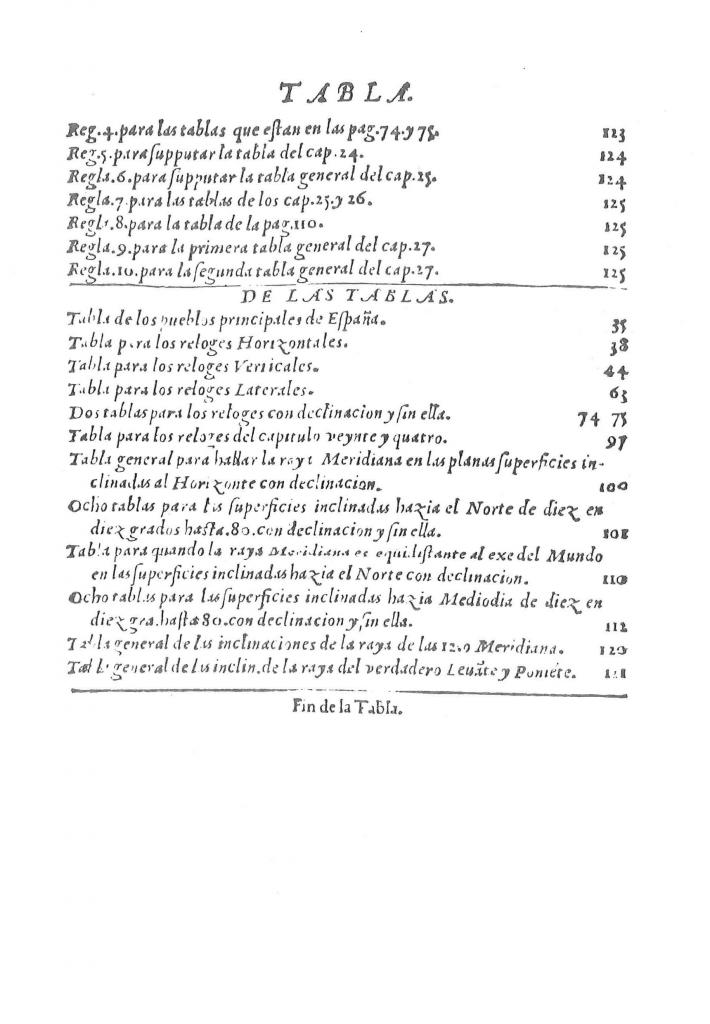 TABLA.
Reg.4.para las tablas que eſtan en las pag.74.y 75. 123
Reg.5.para ſupputar la tabla del cap.24. 124
Regla.6.para ſupputar la tabla general del cap.25. 124
Regla.7.para las tablas de los cap.25.y 26. 125
Regla.8.para la tabla de la pag.110. 125
Regla.9.para la primera tabla general del cap.27. 125
Regla.10.para la ſegunda tabla general del cap.27. 125
DE LAS TABLAS.
Tabla de los pueblos principales de Eſpaña. 35
Tabla para los reloges Horizontales. 38
Tabla para los reloges Verticales. 44
Tabla para los reloges Laterales. 63
Dos tablas para los reloges con declinacion y ſin ella. 74 75
Tabla para los reloges del capitulo veynte y quatro. 97
Tabla general para hallar la raya Meridiana en las planas ſuperficies in-
clinadas al Horizonte con declinacion. 100
Ocho tablas para las ſuperficies inclinadas hazia el Norte de diez en
diez grados haſta.80.con declinacion y ſin ella. 101
Tabla para quando la raya Meridiana es equidiſtante al exe del Mundo
en las ſuperficies inclinadas hazia el Norte con declinacion. 110
Ocho tablas para las ſuperficies inclinadas hazia Mediodia de diez en
diez gra.haſta 80.con declinacion y ſin ella. 112
Tabla general de las inclinaciones de la raya de las 12.o Meridiana. 120
Tabla general de las inclin.de la raya del verdadero Leuãte y Poniẽte. 121
Fin de la Tabla.